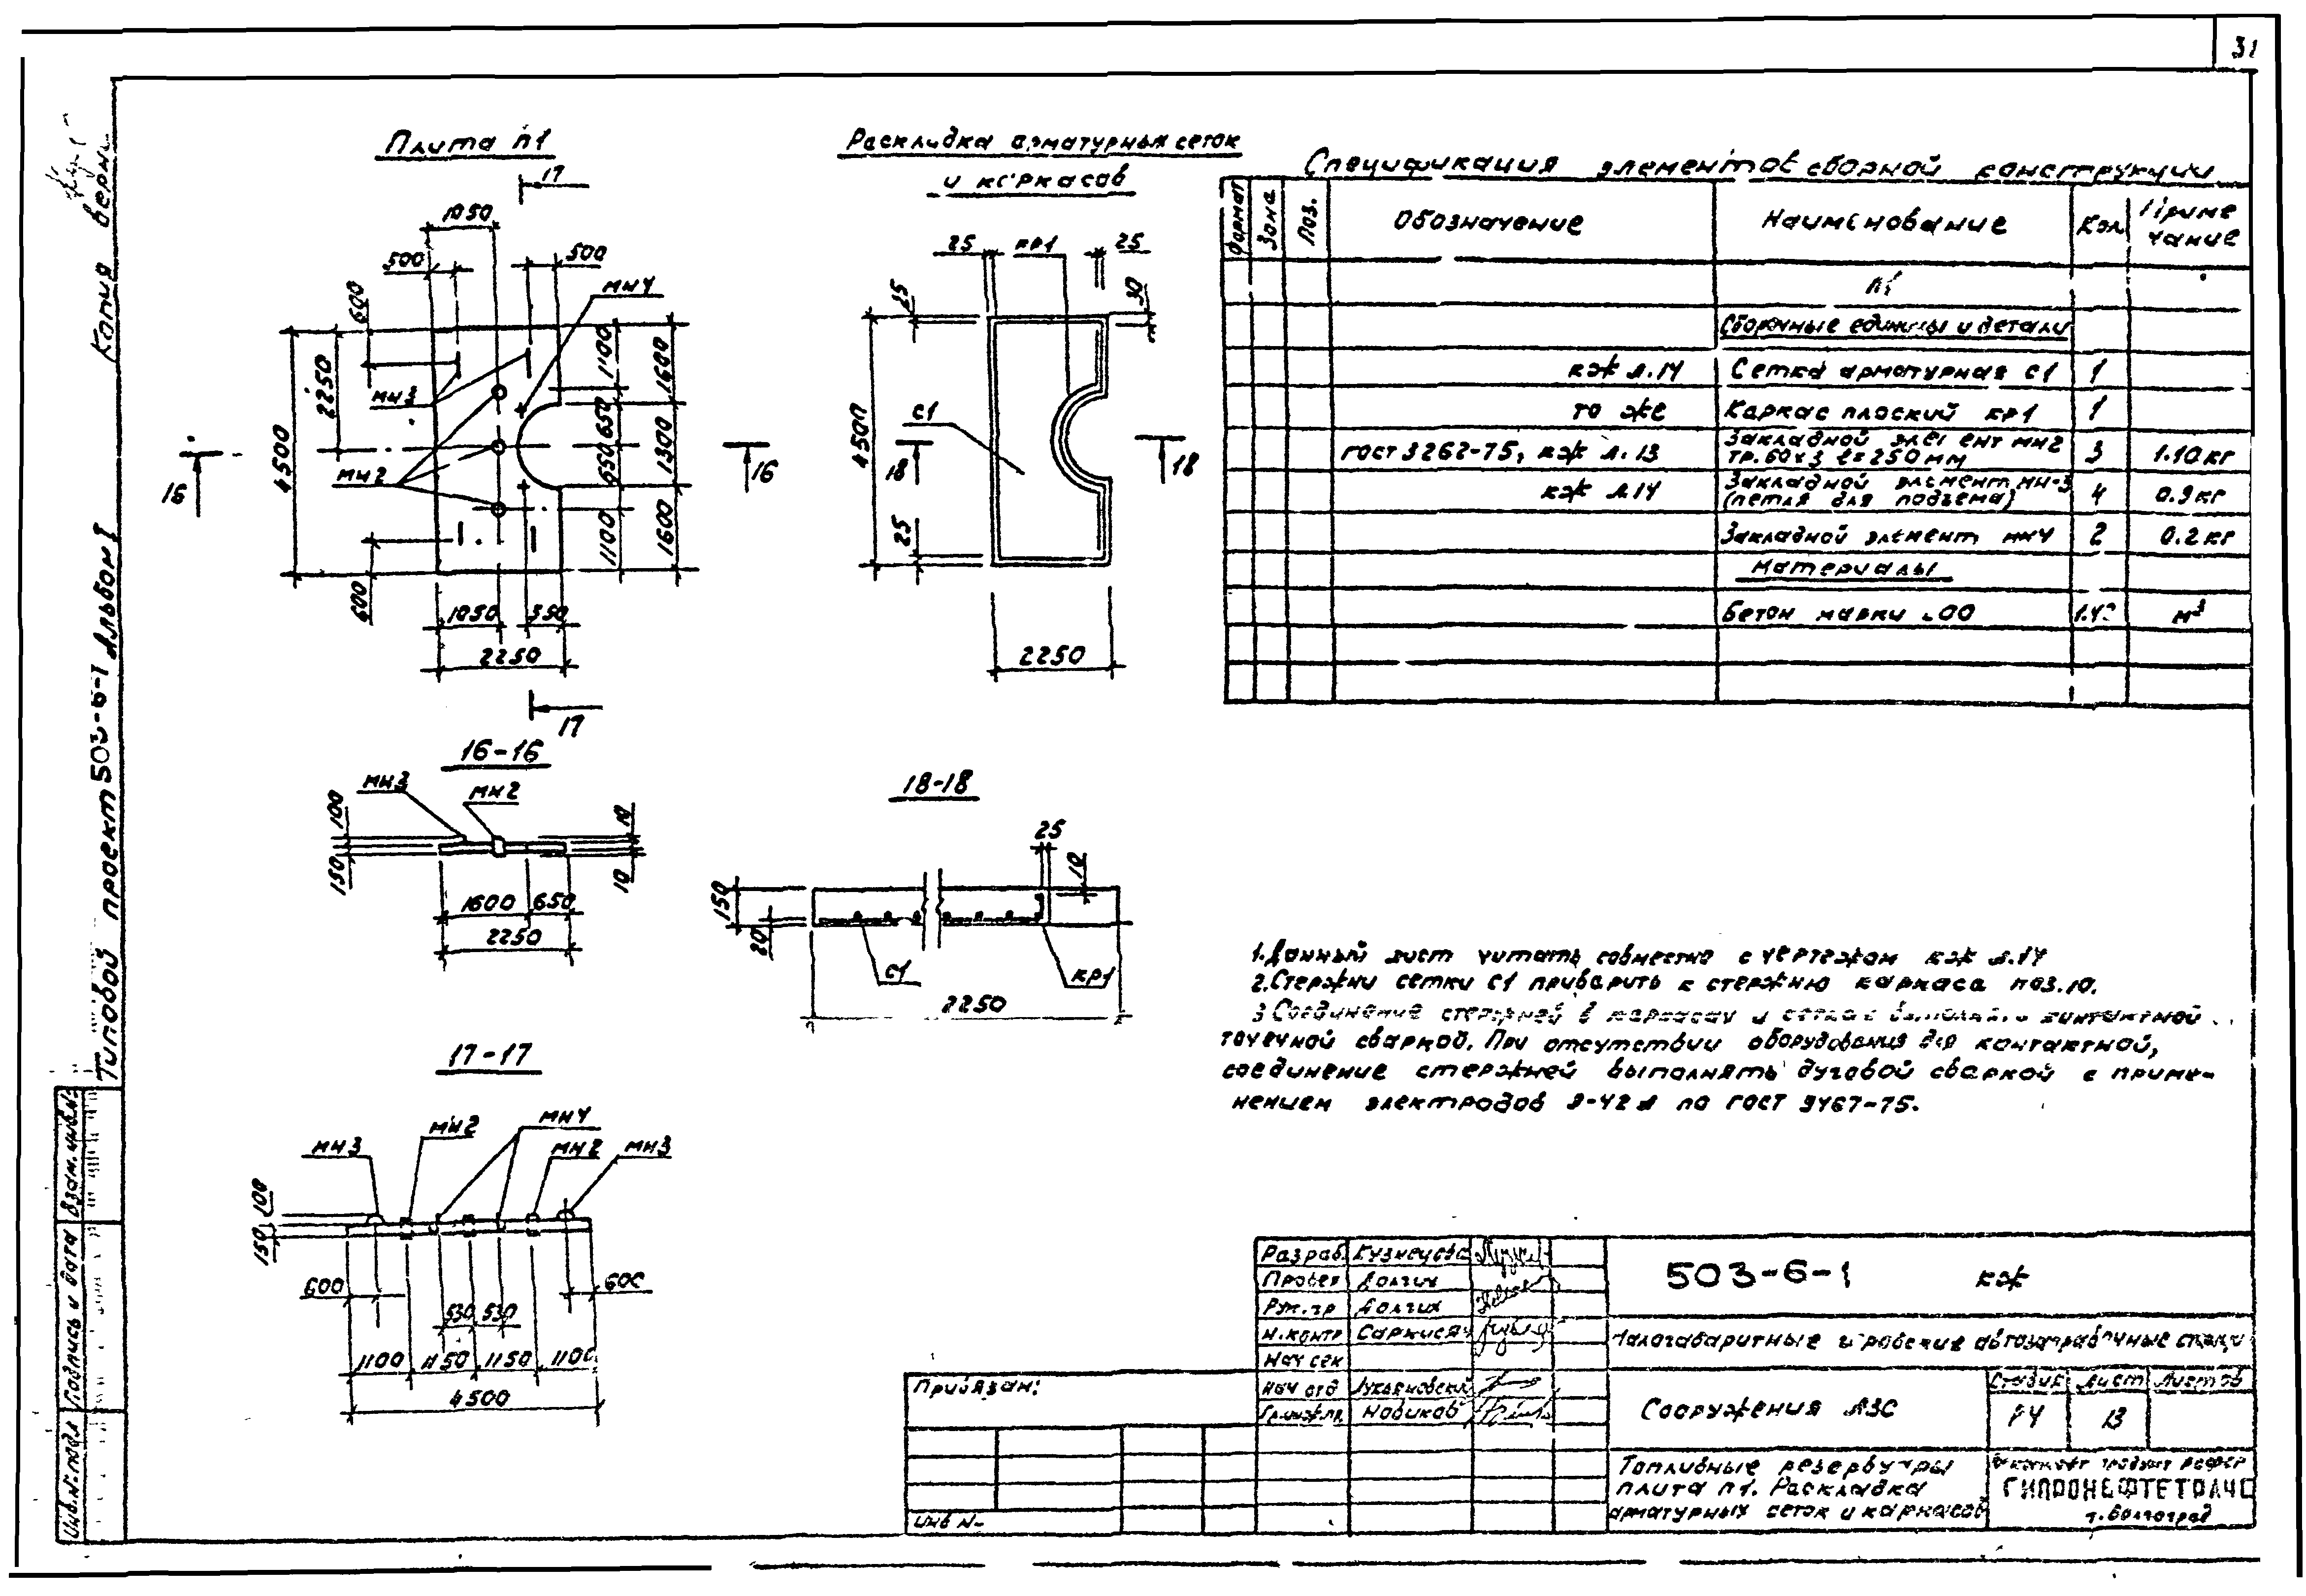 31
Копия верна
Типовой проект 503-6-1 Альбом I
Взам. инв. №
Подпись и дата
Инв. № подл
Плита п1
17
1050
500
500
600
мн4
4500
2250
мн3
мн2
1100
650
650
1100
1600
1300
1600
16
16
600
1050
350
2250
17
Раскладка арматурных сеток
и каркасов
25
кр1
25
25
30
с1
4500
18
18
25
2250
16-16
мн3
мн2
100
150
10
10
1600
650
2250
18-18
25
10
150
20
с1
кр1
2250
17-17
мн3
мн2
мн4
мн2
мн3
100
150
600
600
530 530
1100 1150 1150 1100
4500
Спецификация элементов сборной конструкции
Формат Зона Поз. Обозначение Наименование Кол Приме
чание
п1
Сборочные единицы и детали
кж л.14 Сетка арматурная с1 1
то же Каркас плоский кр1 1
гост 3262-75, кж л. 13 Закладной элемент мн2 3 1.10кг
тр. 60х3 l=250мм
кж л14 Закладной элемент мн-3 4 0.9кг
(петля для подъема)
Закладной элемент мн4 2 0.2кг
Материалы
Бетон марки м³
1. Данный лист читать совместно с чертежом кж л.14
2. Стержни сетки с1 приварить к стержню каркаса поз.10.
3 Соединение стержней в каркасах и сетках контактной
точечной сваркой. При отсутствии оборудования для контактной,
соединение стержней выполнять дуговой сваркой с приме-
нением электродов Э-42А по гост 9467-75.
Разраб. Кузнецова
Провер Долгих
Рук. гр Долгих
Н. контр Саркисян
Нач сек
Нач отд Лукьяновский
Гл. инж. пр. Новиков
503-6-1 кж
Малогабаритные городские автозаправочные станции
Сооружения АЗС
Стадия Лист Листов
РЧ 13
Топливные резервуары
плита п1. Раскладка
арматурных сеток и каркасов
ГИПРОНЕФТЕТРАНС
г. Волгоград
Привязан:
Инв №